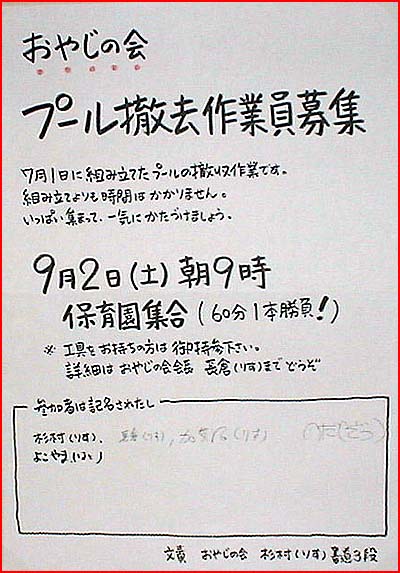 おやじの会
プール撤去作業員募集
7月1日に組み立てたプールの撤収作業です。
組み立てよりも時間はかかりません。
いっぱい集まって、一気にかたづけましょう。
9月2日(土)朝9時
保育園集合(60分1本勝負!)
※工具をお持ちの方は御持参下さい。
詳細はおやじの会会長 長倉(りす)までどうぞ
参加者は記名されたし
杉村(りす)、(りす),(りす)
よこやま
文責 おやじの会 杉村(りす)書道3段